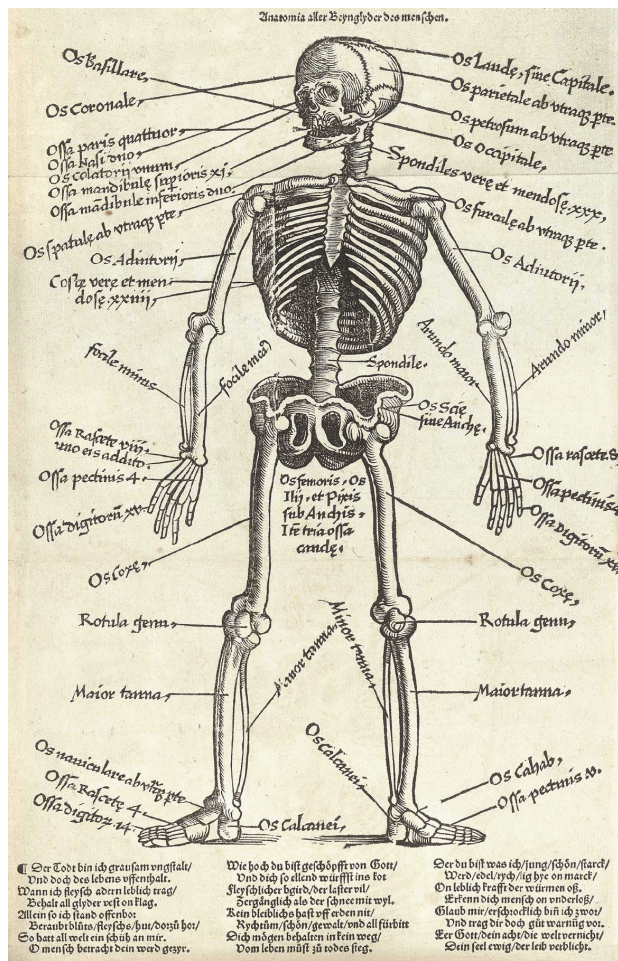 Anatomia aller Beynglyder des menschen.
Os Basillare,
Os Coronale,
Ossa paris quattuor,
Ossa Nasi duo,
Os Colatorij unum,
Ossa mandibulę supioris xj,
Ossa mādibule inferioris duo.
Os spatulę ab vtraqʒ pte,
Os Adiutorij,
Costę vere et men
dosę.xxiiij,
focile minus
focile maius
Ossa Rascete viij,
uno eis addito.
Ossa pectinis 4.
Ossa digitorū xv
Os Coxę,
Rotula genu,
Maior tanna,
Minor tanna,
Os naviculare ab vtraqʒ pte
Ossa Rascete 4
Ossa digitoꝝ 14.
Os Calcanei,
Os Laudę, siue Capitale.
Os parietale ab vtraqʒ pte.
Os petrosum ab vtraqʒ pte
Os Occipitale,
Spondiles verę et mendosę.xxx,
Os furculę ab vtraqʒ pte.
Os Adiutorij,
Arundo maior
Arundo minor,
Spondile.
Os Scię
siue Anchę.
Ossa rascete 8
Ossa pectinis 4
Ossa Digitorū xv
Os femoris, Os
Ilij, et Pixis
sub Anchis.
Itē tria ossa
caudę.
Os Coxę,
Rotula genu,
Minor tanna
Maior tanna.
Os Calcanei,
Os Cahab,
Ossa pectinis v.
¶ Der Todt bin ich grausam vngstalt/
Vnd doch des lebens vffenhalt.
Wann ich fleysch adern leblich trag/
Behalt all glyder vest on klag.
Allein so ich stand offenbor
Beraubt blůts/fleyschs/hut/dorzů hor/
So hatt all welt ein schüh an mir.
O mensch betracht dein werd gezyr.
Wie hoch du bist geschöpfft von Gott/
Vnd dich so ellend würfft ins kot
Fleyschlicher bgird/der laster vil
Zergänglich als der schnee mit wyl.
Kein bleiblichs hast vff erden nit/
Rychtům/schön/gewalt/vnd all fürbitt
Dich mögen behalten in kein weg/
Vom leben můst zů todes steg.
Der du bist was ich/jung/schön/starck/
Werd/edel/rych/lig hye on marck/
On leblich krafft der würmen oß.
Erkenn dich mensch on vnderloß/
Glaub mir/erschrocklich bin ich zwor/
Vnd trag dir doch gůt warnůg vor.
Eer Gott/dein acht/die welt vernicht/
Dein seel ewig/der leib verblicht.